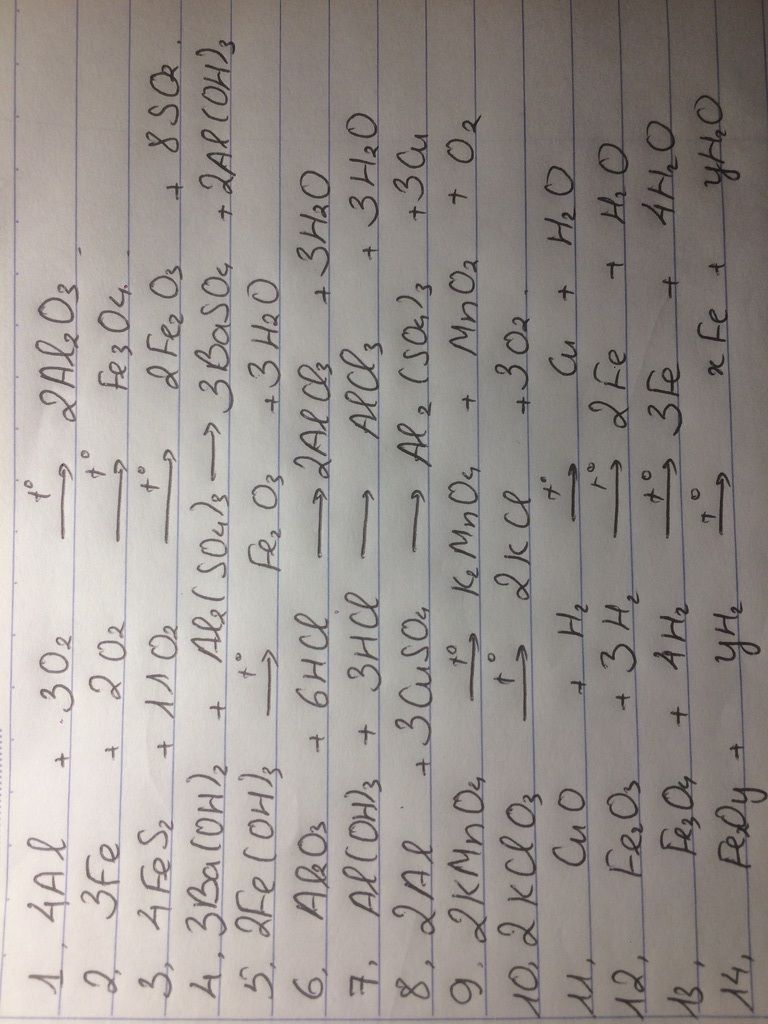 1, 4Al + 3O₂ —t°→ 2Al₂O₃
2, 3Fe + 2O₂ —t°→ Fe₃O₄.
3, 4FeS₂ + 11O₂ —t°→ 2Fe₂O₃ + 8SO₂.
4, 3Ba(OH)₂ + Al₂(SO₄)₃ → 3BaSO₄ + 2Al(OH)₃
5, 2Fe(OH)₃ —t°→ Fe₂O₃ + 3H₂O
6, Al₂O₃ + 6HCl → 2AlCl₃ + 3H₂O
7, Al(OH)₃ + 3HCl → AlCl₃ + 3H₂O
8, 2Al + 3CuSO₄ → Al₂(SO₄)₃ + 3Cu
9, 2KMnO₄ —t°→ K₂MnO₄ + MnO₂ + O₂
10, 2KClO₃ —t°→ 2KCl + 3O₂.
11, CuO + H₂ —t°→ Cu + H₂O
12, Fe₂O₃ + 3H₂ —t°→ 2Fe + H₂O
13, Fe₃O₄ + 4H₂ —t°→ 3Fe + 4H₂O
14, FexOy + yH₂ —t°→ xFe + yH₂O